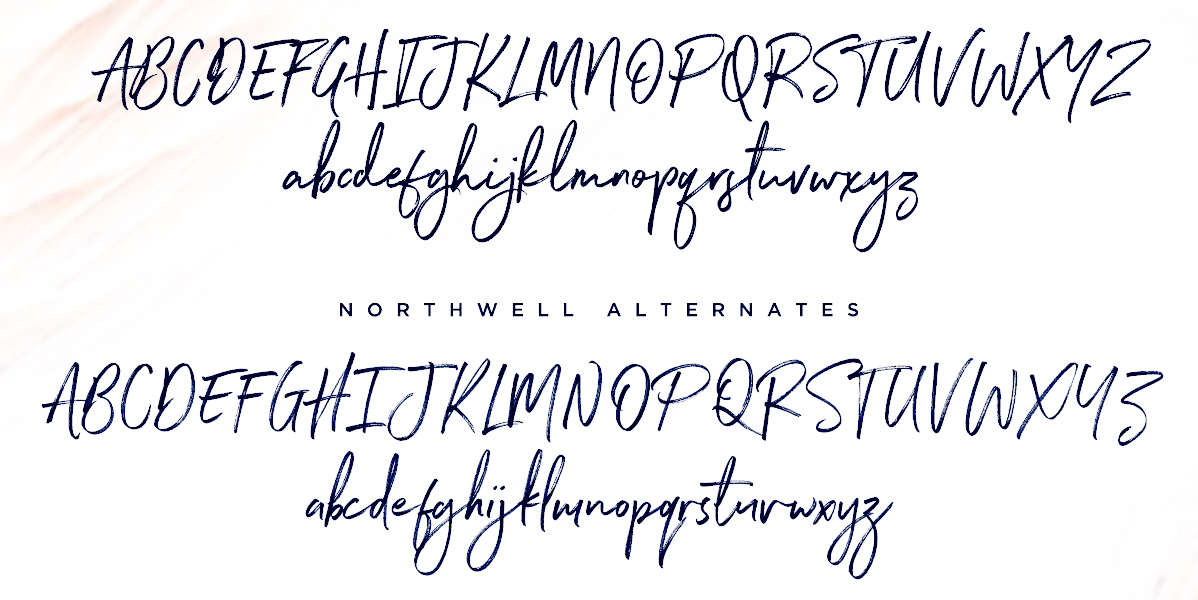 ABCDEFGHIJKLMNOPQRSTUVWXYZ
abcdefghijklmnopqrstuvwxyz
NORTHWELL ALTERNATES
ABCDEFGHIJKLMNOPQRSTUVWXYZ
abcdefghijklmnopqrstuvwxyz